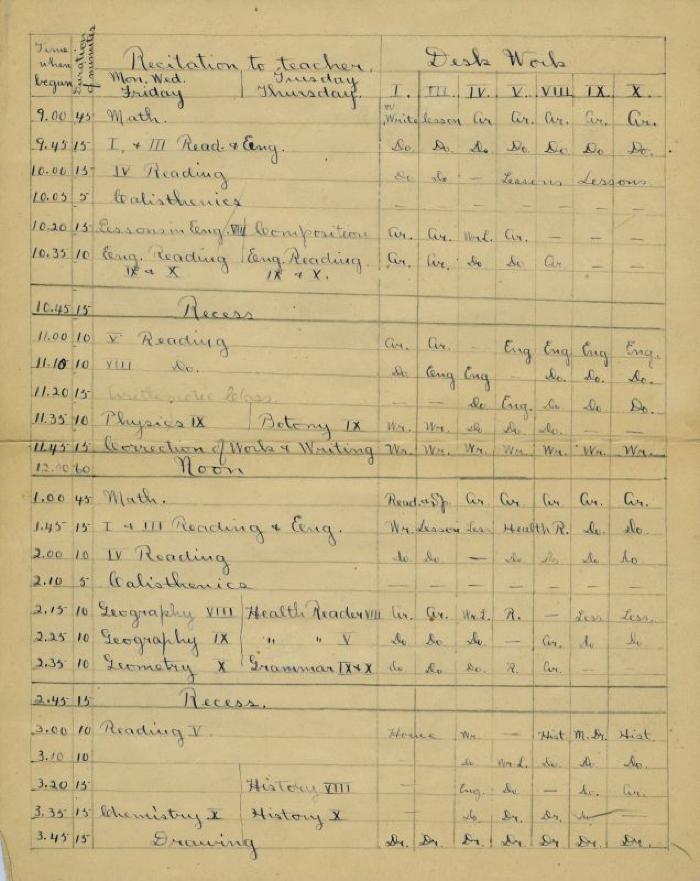 Time when began Duration of minutes Recitation to teacher. Desk Work
Mon. Wed. Friday Tuesday Thursday. I. III. IV. V. VIII IX. X.
9.00 45 Math. Write lesson Ar Ar. Ar. Ar. Ar.
9.45 15 I, & III Read. & Eng. Do. Do. Do Do. Do Do. Do.
10.00 15 IV Reading Do Do - Lessons Lessons
10.05 5 Calisthenics - - - - - - -
10.20 15 Lessons in Eng. VIII Composition Ar. Ar. Wr.L. Ar. - - -
10.35 10 Eng. Reading IX & X Eng. Reading IX & X. Ar. Ar. Do Do Ar. - -
10.45 15 Recess
11.00 10 V Reading Ar. Ar. - Eng Eng Eng Eng.
11.10 10 VIII Do. Do Eng Eng Do. Do. Do.
11.20 15 - - Do Eng. Do Do Do.
11.35 10 Physics IX Botony IX Wr. Wr. Do Do. Do. - -
11.45 15 Correction of Work & Writing Wr. Wr. Wr. Wr. Wr. Wr. Wr.
12.00 60 Noon
1.00 45 Math. Read. Ar. Ar. Ar. Ar. Ar.
1.45 15 I & III Reading & Eng. Wr. Lesson Less Health R. Do. Do.
2.00 10 IV Reading Do Do - Do Do Do Do
2.10 5 Calisthenics - - - - - - -
2.15 10 Geography VIII Health Reader VIII Ar. Ar. Wr.L. R. - Less Less.
2.25 10 Geography IX " " V Do Do Do - Ar. Do Do
2.35 10 Geometry X Grammar IX & X Do Do. Do. R. Ar. - -
2.45 15 Recess.
3.00 10 Reading V. Home Wr. - Hist M.Dr. Hist.
3.10 10 Do Wr.L. Do. Do. Do.
3.20 15 History VIII - Eng. Do - Do. Ar.
3.35 15 Chemistry X History X - Do Dr. Dr. Do -
3.45 15 Drawing Dr. Dr. Dr. Dr. Dr. Dr. Dr.